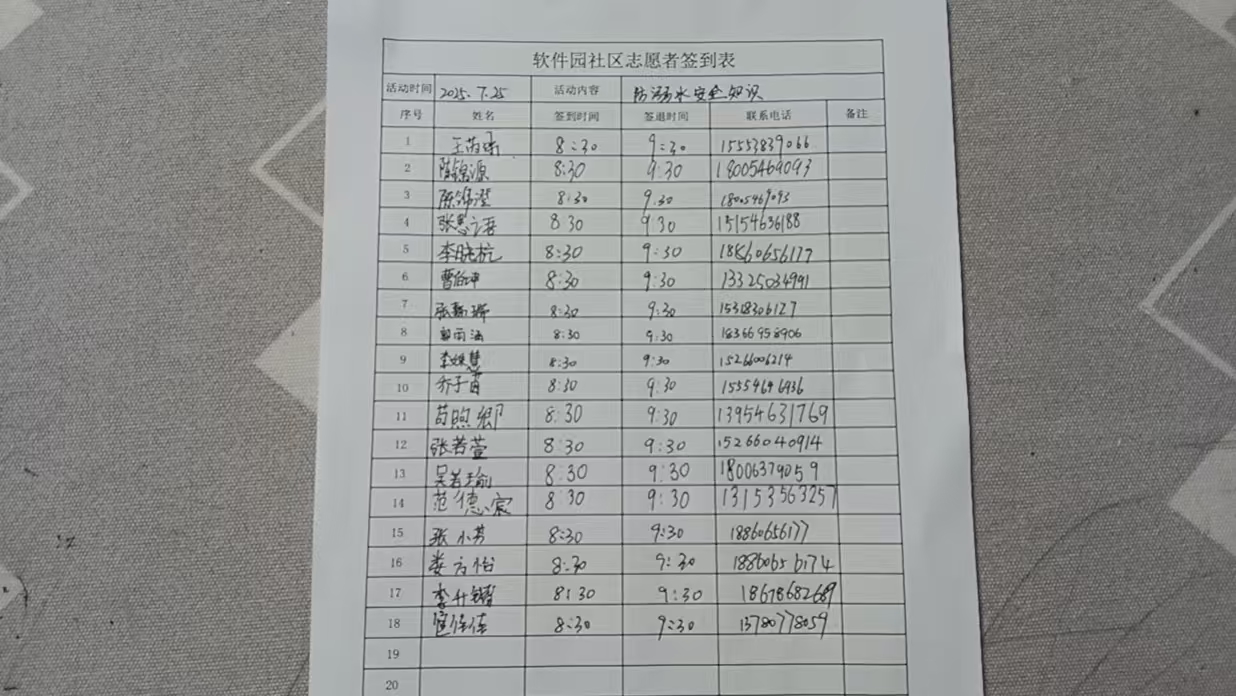 软件园社区志愿者签到表
活动时间 2025.7.25 活动内容 防溺水安全知识
序号 姓名 签到时间 签退时间 联系电话 备注
1 8:30 9:30 15553839066
2 陈锦源 8:30 9:30 18005469093
3 陈锦澄 8:30 9.30 18005469093
4 张慧语 8 30 9 30 15154636188
5 李晓杭 8:30 9:30 18860656177
6 曹 8:30 9:30 13325034991
7 张 8:30 9:30 15318306127
8 雨涵 8:30 9:30 18366958906
9 李 8:30 9:30 15266006214
10 乔子 8:30 9:30 15554696936
11 苟煦卿 8:30 9:30 13954631769
12 张若萱 8:30 9:30 15266040914
13 吴若瑜 8:30 9:30 18006379059
14 范德宸 8:30 9:30 13153563257
15 张小芳 8:30 9:30 18860656177
16 娄方怡 8:30 9:30 18860656174
17 李升 8:30 9:30 18678682689
18 佳佳 8:30 9:30 13780778059
19
20